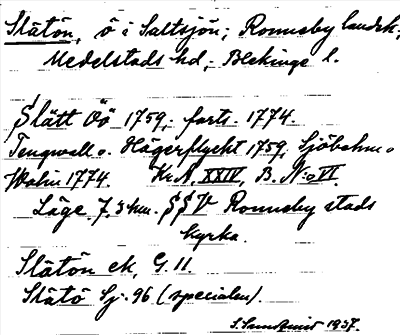 Slätön, ö i Saltsjön; Ronneby landsk.;
Medelstads hd; Blekinge l.
Slätt Öö 1759; forts. 1774.
Tengwall o. Hägerflycht 1759, Sjöbohm o
Wahn 1774. Kr.A. XXIV, B. N:o VI.
Läge 7,5 km. SSV Ronneby stads
kyrka.
Slätön ek, G. 11.
Slätö Sj. 96 (specialen).
S. Sundquist 1937.